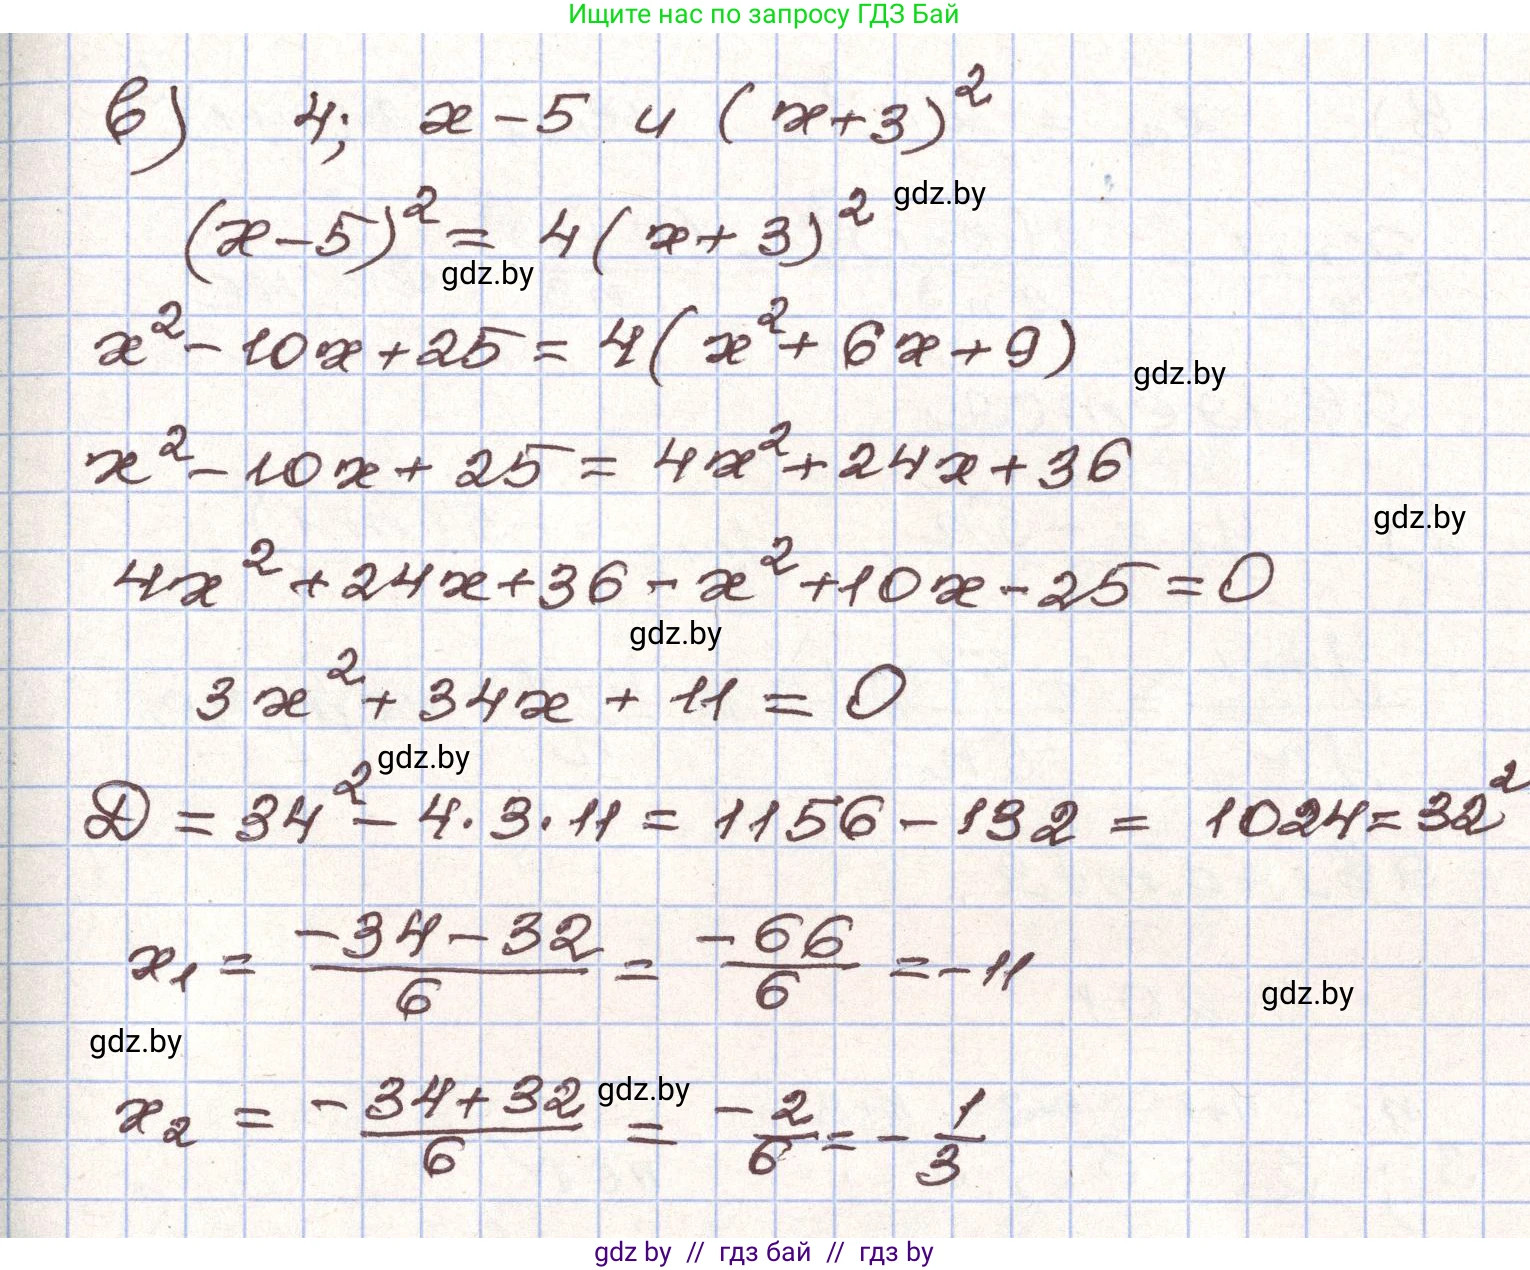 Ищите нас по запросу ГДЗ Бай
в) 4; x - 5 и (x + 3)²
gdz.by
(x - 5)² = 4(x + 3)²
gdz.by
x² - 10x + 25 = 4(x² + 6x + 9)
gdz.by
x² - 10x + 25 = 4x² + 24x + 36
gdz.by
4x² + 24x + 36 - x² + 10x - 25 = 0
gdz.by
3x² + 34x + 11 = 0
gdz.by
D = 34² - 4·3·11 = 1156 - 132 = 1024 = 32²
x₁ = (-34 - 32)/6 = -66/6 = -11
gdz.by
gdz.by
x₂ = (-34 + 32)/6 = -2/6 = -1/3
gdz.by
gdz by // гдз бай // гдз by